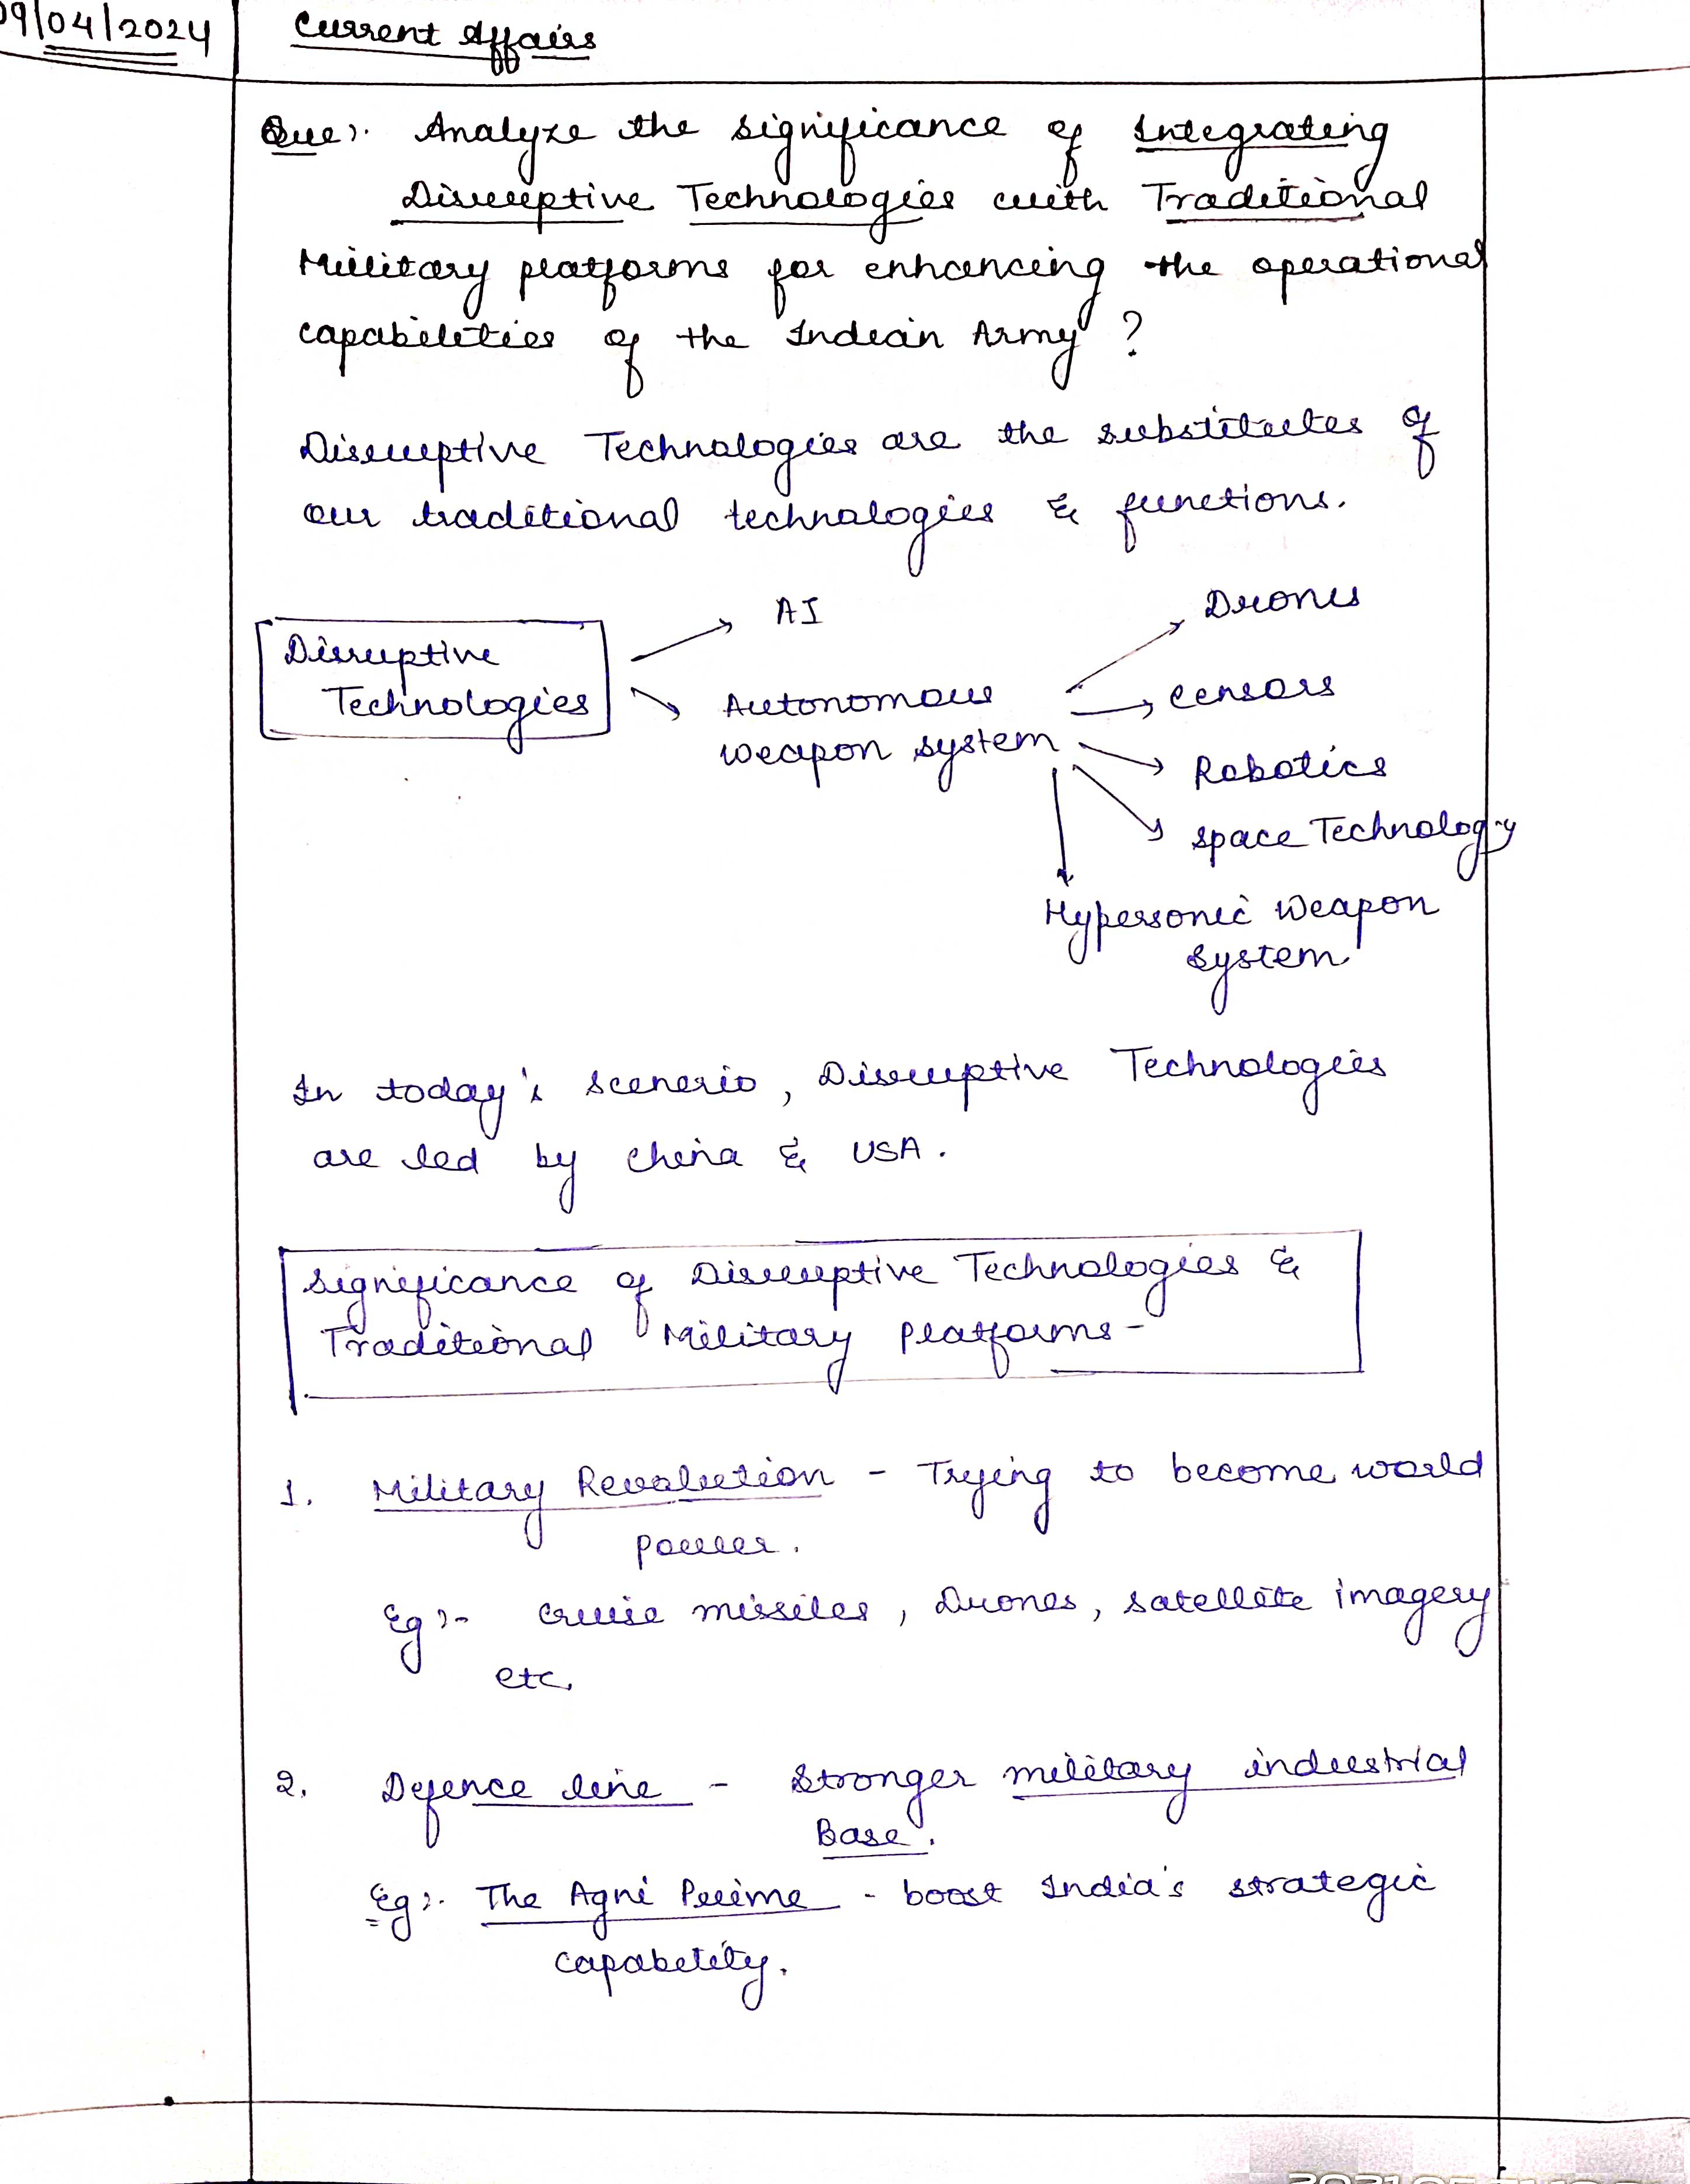 09/04/2024
Current Affairs
Que:- Analyze the significance of Integrating
Disruptive Technologies with Traditional
Military platforms for enhancing the operational
capabilities of the Indian Army ?
Disruptive Technologies are the substitutes of
our traditional technologies & functions.
Disruptive
Technologies
AI
Autonomous
weapon system
Drones
Censors
Robotics
Space Technology
Hypersonic Weapon
System
In today's scenerio, Disruptive Technologies
are led by China & USA.
Significance of Disruptive Technologies &
Traditional Military Platforms-
1. Military Revolution - Trying to become world
power.
Eg:- cruise missiles, Drones, satellite imagery
etc.
2. Defence line - Stronger military industrial
Base.
Eg:- The Agni Prime - boost India's strategic
capabelity.